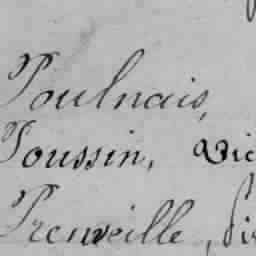 Poulnais,
Poussin, Vic
Preuveille,